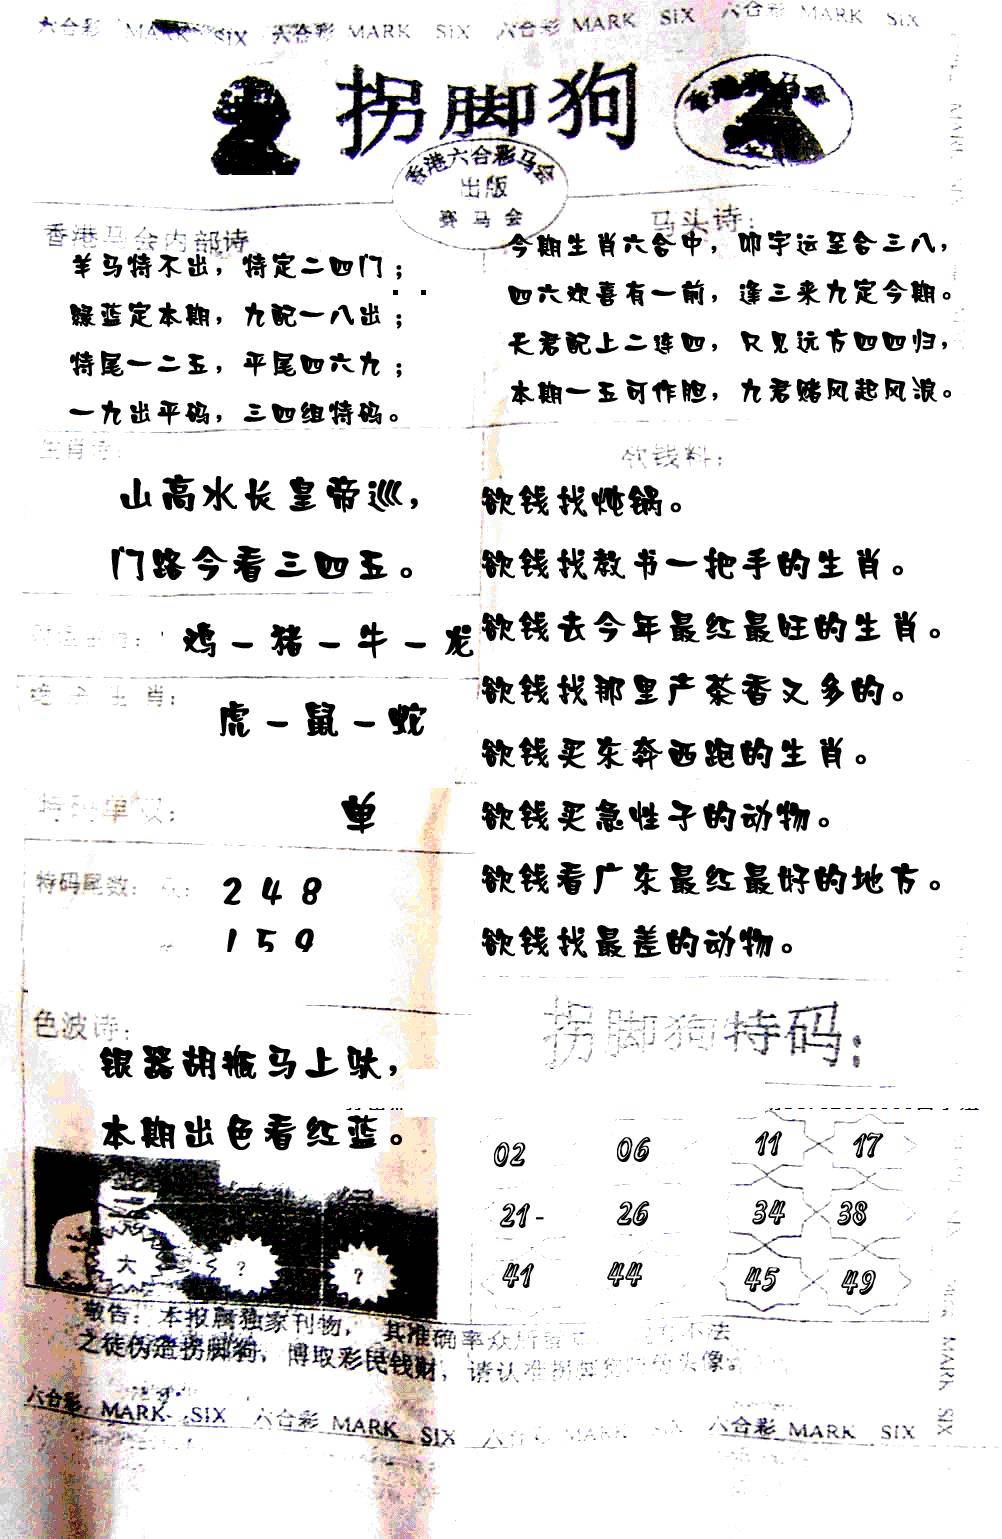 六合彩 MARK SIX 六合彩 MARK SIX 六合彩 MARK SIX 六合彩 MARK SIX
拐脚狗
香港六合彩马会
出版
赛马会
香港马会内部诗
羊马特不出，特定二四门；
绿蓝定本期，九配一八出；
特尾一二五，平尾四六九；
一九出平码，三四组特码。
马头诗：
今期生肖六合中，叩字远至合三八，
四六欢喜有一前，逢三来九定今期。
天君配上二连四，只见远方四四归，
本期一五可作胆，九君赌风起风浪。
生肖诗：
山高水长皇帝巡，
门路今看三四五。
鸡－猪－牛－龙
生肖：
虎－鼠－蛇
特码单双：
单
特码尾数：
2 4 8
1 5 9
色波诗：
银器胡瓶马上驮，
本期出色看红蓝。
欲钱料：
欲钱找炖锅。
欲钱找教书一把手的生肖。
欲钱去今年最红最旺的生肖。
欲钱找那里产茶香又多的。
欲钱买东奔西跑的生肖。
欲钱买急性子的动物。
欲钱看广东最红最好的地方。
欲钱找最差的动物。
拐脚狗特码：
02 06 11 17
21- 26 34 38
41 44 45 49
大 ? ?
敬告：本报属独家刊物，其准确率众所 不法
之徒伪造拐脚狗，博取彩民钱财，请认准拐脚 头像。
六合彩 MARK SIX 六合彩 MARK SIX 六合彩 MARK SIX 六合彩 MARK SIX
MARK SIX